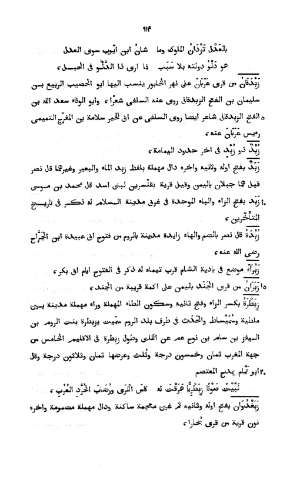 ٩١٤
بالعدل تزدان الملوك وما شان ابن ايوب سوى العدل
هو دلو دولته بلا سبب ذا ارى ذا الدلو في الحبل
زبدقان من قرى عربان على نهر الخابور ينسب اليها ابو الحصيب الربيع بن
سليمان بن الفتح الزبدقاني روى عنه السلفي شعرا وابو الوفاء سعد الله بن
الفتح الزبدقاني شاعر ايضا روى السلفي عن ابي الخير سلامة بن المفرج التميمي
رييس عربان عنه
زبد ذو زبد في اخر حدود اليمامة
زبد بفتح اوله وثانيه واخره دال مهملة بلفظ زبد الماء والبعير وغيرها قال نصر
قيل هما جبلان باليمن وقيل قرية بقنسرين لبني اسد قال محمد بن موسى
زبد الراء والباء الموحدة في غربي مدينة السلام له ذكر في تاريخ
المتاخرين
زبدة قال نصر بالضم والهاء زايدة مدينة بالروم من فتوح ابي عبيدة ابن الجراح
رضى الله عنه
زبراء موضع في بادية الشام قرب تيماء له ذكر في الفتوح ايام ابي بكر
زبران من قرى الجند باليمن على اكمة قريبة من الجند
زبطرة بكسر الزاء وفتح ثانيه وسكون الطاء المهملة وراء مهملة مدينة بين
ملطية وسميساط والحدث في طرف بلد الروم سميت بزبطرة بنت الروم بن
اليفز بن سام بن نوح عم عن الكلبي وطول زبطرة في الاقليم الخامس من
جهة المغرب ثمان وخمسون درجة وثلث وعرضها ثمان وثلاثون درجة وقال
ابو تمام يمدح المعتصم
لبيت صوتا زبطريا هرقت له كاس الكرى ورضاب الخرد العرب
زبغدوان بفتح اوله وثانيه ثم غين معجمة ساكنة ودال مهملة مضمومة واخره
نون قرية من قرى بخارا